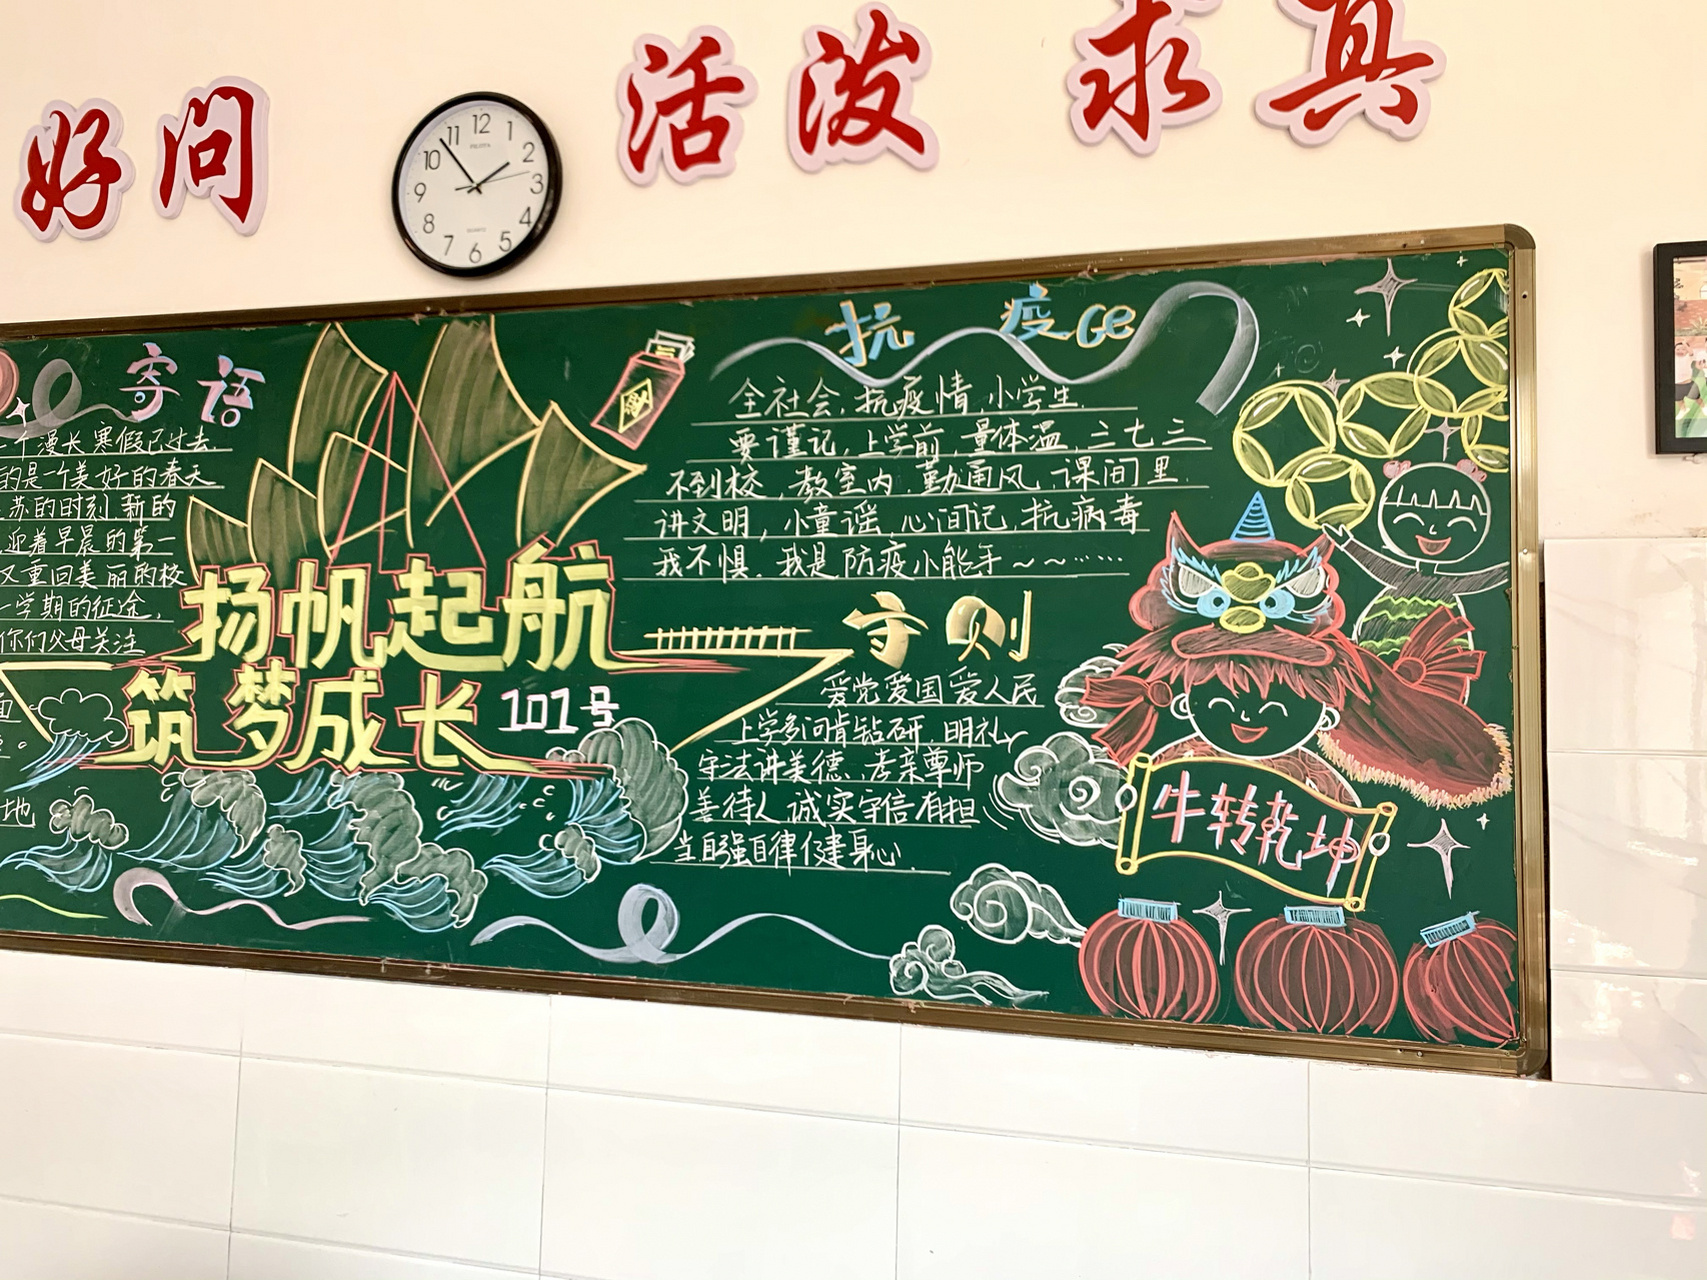 好问
活泼
求真
12
1
2
3
4
5
6
7
8
9
10
11
QUARTZ
寄语
一个漫长寒假已过去,
的是一个美好的春天
苏的时刻,新的
迎着早晨的第一
又重回美丽的校
一学期的征途,
你们父母关注
地
扬帆起航
筑梦成长 101号
抗疫Ge
全社会,抗疫情,小学生,
要谨记,上学前,量体温,三七三
不到校,教室内,勤通风,课间里,
讲文明,小童谣,心间记,抗病毒
我不惧,我是防疫小能手~~……
守则
爱党爱国爱人民
上学多问肯钻研,明礼
守法讲美德,孝亲尊师
善待人,诚实守信有担
当自强自律健身心.
牛转乾坤